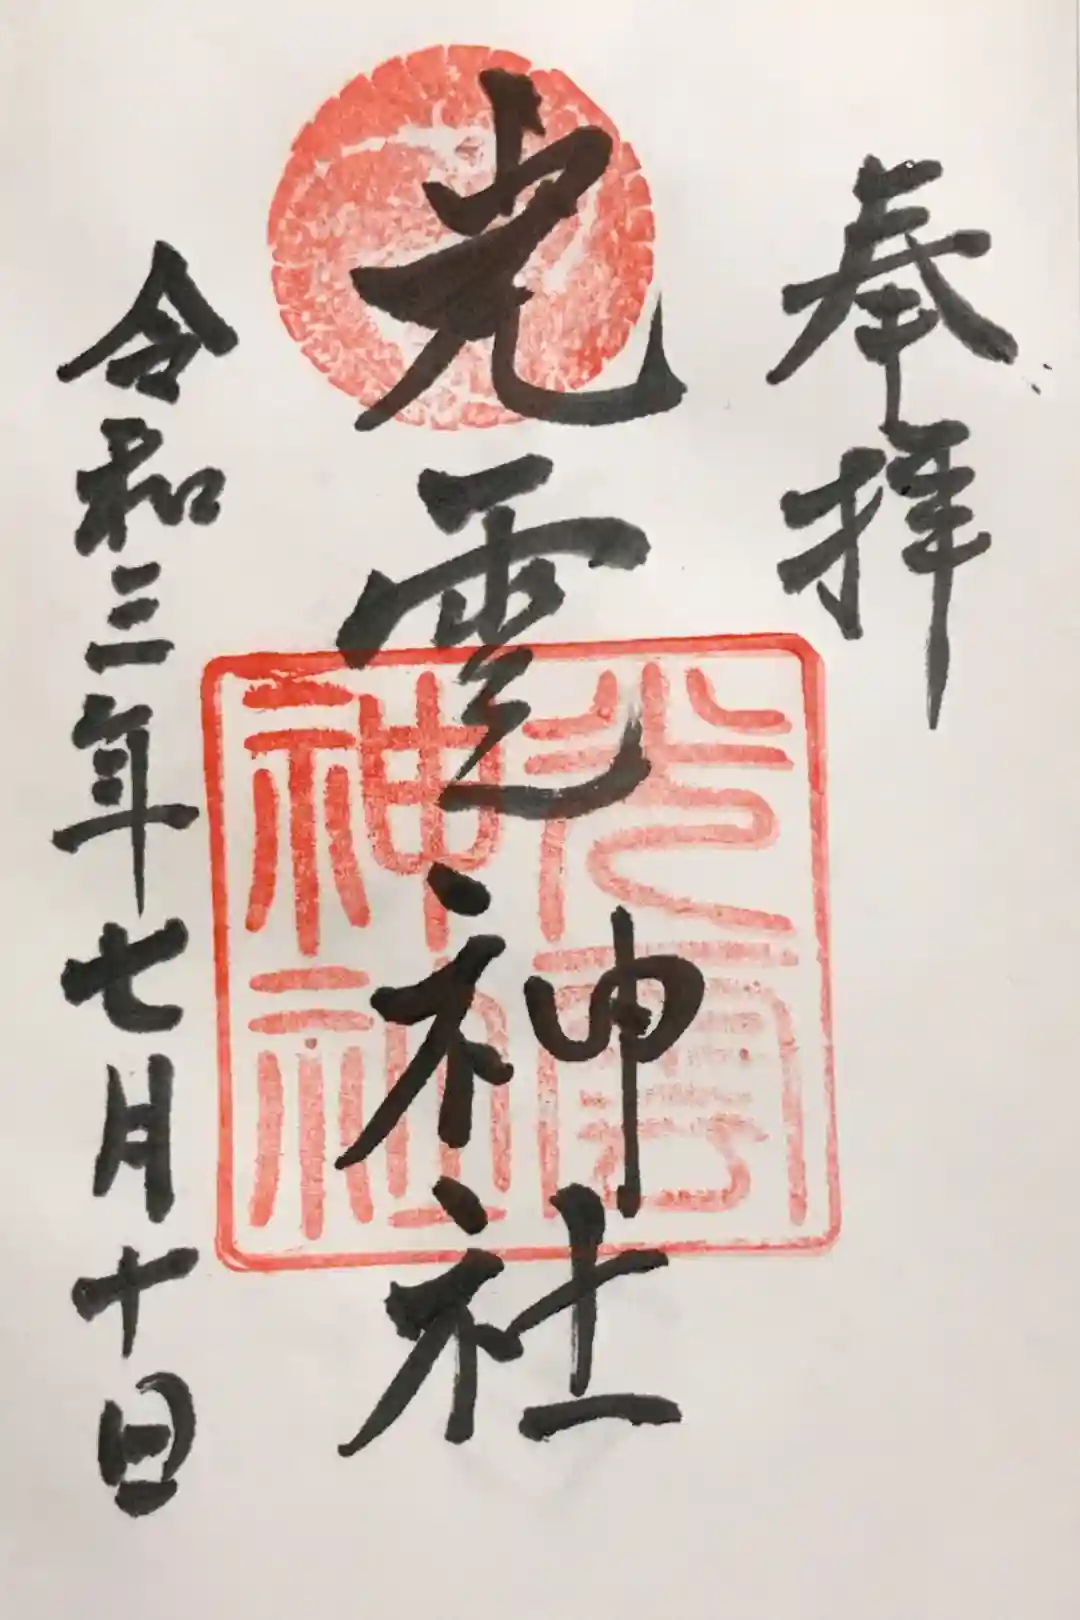 奉拝
光雲神社
光雲神社
令和三年七月十日